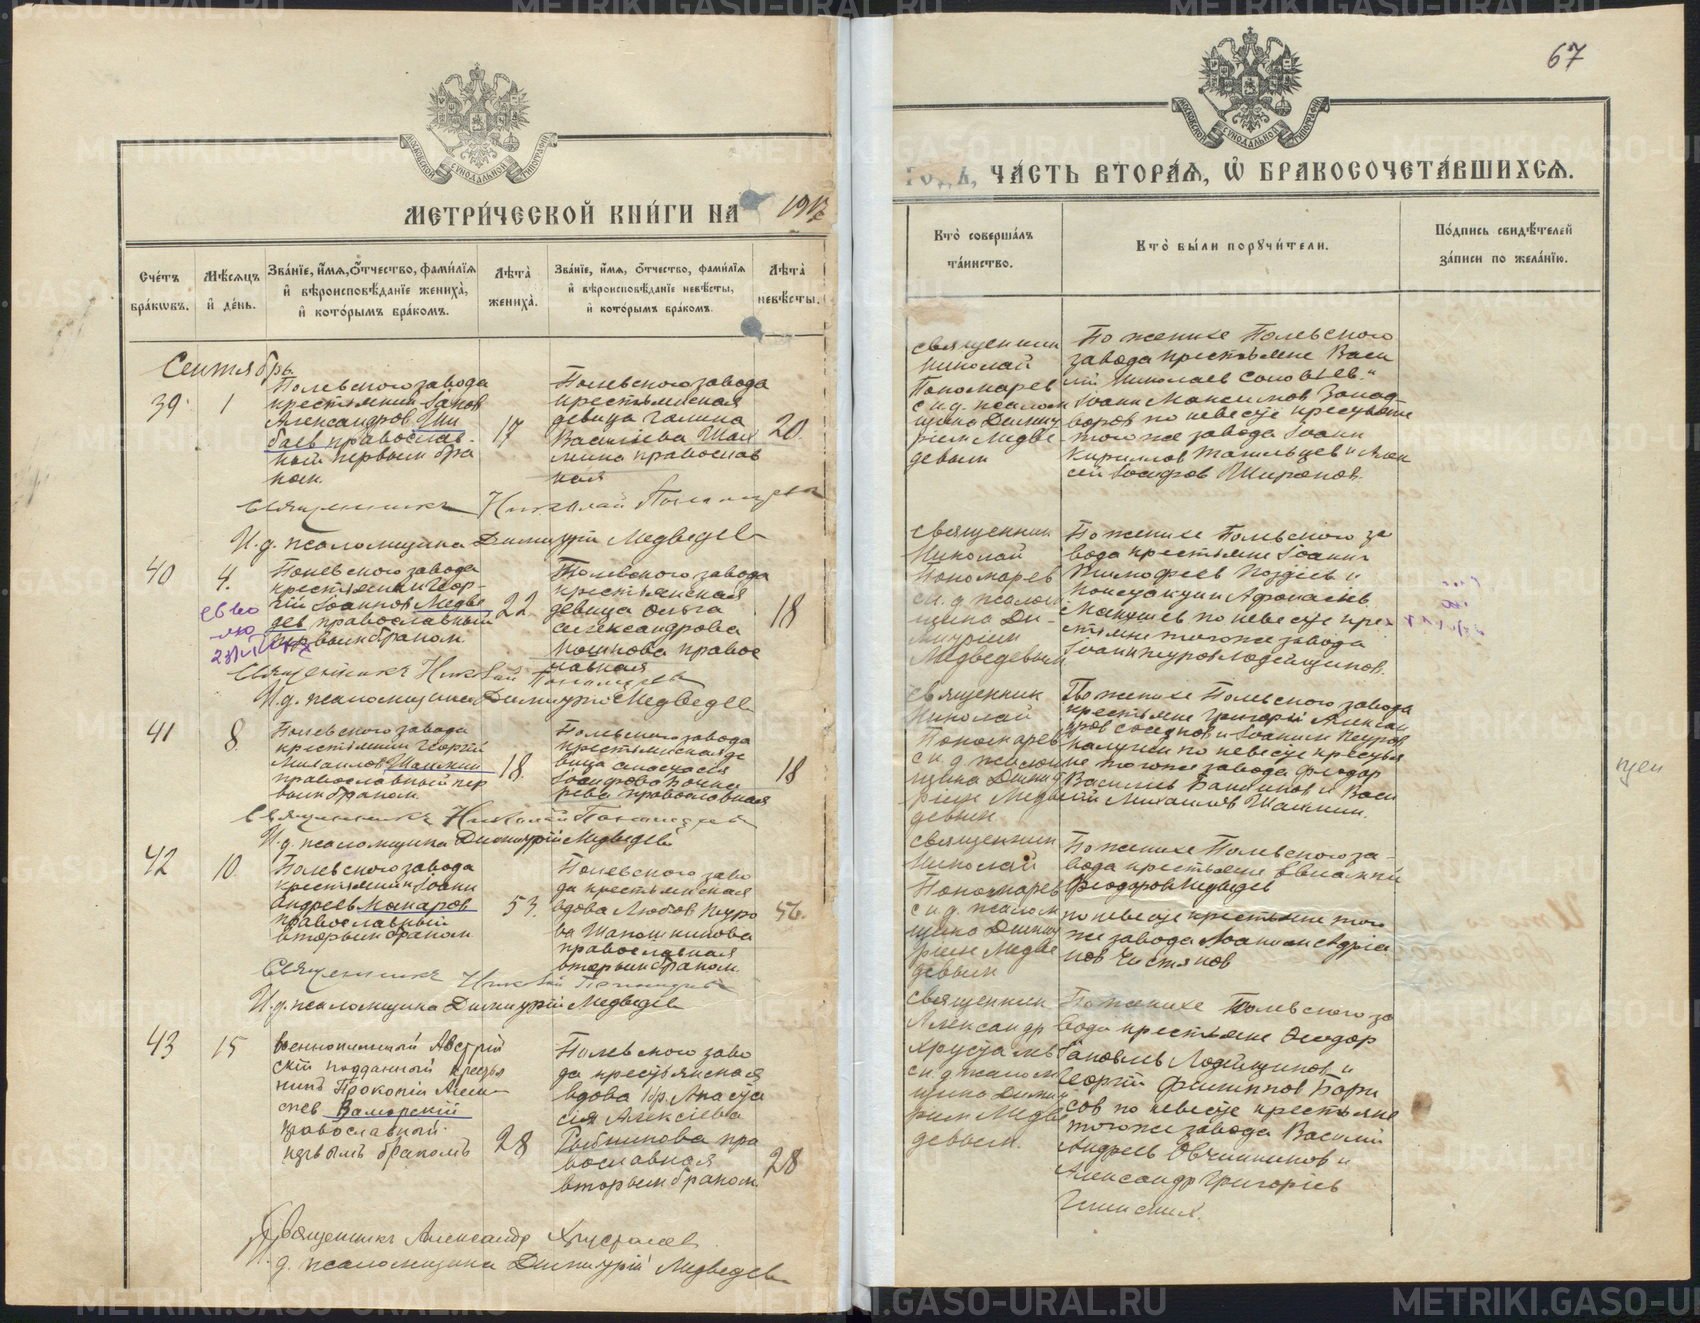 67
МЕТРИ́ЧЕСКОЙ КНИ́ГИ НА 191
ЧА́СТЬ ВТОРА́Я, Ѽ БРАКОСОЧЕТА́ВШИХСЯ.
Сче́тъ бра́кѡвъ.
Мѣ́сяцъ и҆ де́нь.
Зва́нїе, и҆́мя, ѻ҆́тчество, фами́лїя и҆ вѣроисповѣ́данїе жениха̀, и҆ кото́рымъ бра́комъ.
Лѣ́та жениха̀.
Зва́нїе, и҆́мя, ѻ҆́тчество, фами́лїя и҆ вѣроисповѣ́данїе невѣ́сты, и҆ кото́рымъ бра́комъ.
Лѣ́та невѣ́сты.
Кто̀ соверша́лъ та́инство.
Кто̀ бы́ли порꙋчи́тели.
По́дпись свидѣ́телей за́писи по жела́нїю.
Сентябрь.
39
1
Полевского завода
крестьянин Іаков
Александров
православ-
ный первым бра
ком
17
Полевского завода
крестьянская
девица Галина
Василіева
православ
ная
20.
священник
Николай
Пономарев
с и.д. псалом
щика Димит
рием Медве
девым
По женихе Полевского
завода крестьяне Васи
лій Николаев Соловьев и
Іоанн Максимов
по невесте крестьяне
того же завода Іоанн
Кириллов и Алек
сей Іосифов
Священникъ Николай Пономарев
И.д. псаломщика Димитрій Медведев
40
4.
Полевского завода
крестьянин Геор-
гій Іоаннов Медве
дев православный
первым браком.
22
Полевского завода
крестьянская
девица Ольга
Александрова
правос
лавная
18
священник
Николай
Пономарев
с и. д. псалом
щика Ди-
митрием
Медведевым
По женихе Полевского за
вода крестьяне Іоанн
Тимофеев и
по невесте кре
стьяне того же завода
Священникъ Николай Пономарев
И.д. псаломщика Димитрій Медведев
41
8
Полевского завода
крестьянин Георгій
Михаилов Шахмин
православный пер
вым браком.
18
Полевского завода
крестьянская де
вица Анастасія
Іосифова
православная
18
священник
Николай
Пономарев
с и д. псалом
щика Димит
рием Медве
девым
По женихе Полевского завода
крестьяне Григорій Алексан
дров и Іоанн Петров
по невесте крестья
не того же завода Феодор
Васильев и Васи
лій Михаилов Шахмин.
Священникъ Николай Пономарев
И.д. псаломщика Димитрій Медведев
42
10
Полевского завода
крестьянин Іоанн
Андреев Макаров
православный
вторым браком
53.
Полевского заво
да крестьянская
вдова Любов Петро
ва Шапошникова
православная
вторым браком.
56.
священник
Николай
Пономарев
с и.д. псалом
щика Димит
рием Медве
девым
По женихе Полевского за-
вода крестьяне
Феодоров Медведев
по невесте крестьяне того
же завода Іоанн Андріа
нов Чистяков
Священникъ Николай Пономарев
И.д. псаломщика Димитрій Медведев
43
15
Военнопленный Австрій
скій подданный крестья
нинъ Прокопій Алек
сеев Заморскій
православный
первымъ бракомъ
28
Полевского заво
да крестьянская
вдова Анаста
сія Алексіевна
Рыбникова пра
вославная
вторым браком.
28
священник
Александр
Хрусталев
с и.д. псалом
щика Димит
рием Медве
девым.
По женихе Полевского за
вода крестьяне Феодор
Іаковлев Лодейщиков и
Георгій Филиппов Бори
сов по невесте крестьяне
того же завода Василій
Андреев Овчинников и
Александр Григорьев
Священникъ Александр Хрусталев
И.д. псаломщика Димитрій Медведев
METRIKI.GASO-URAL.RU